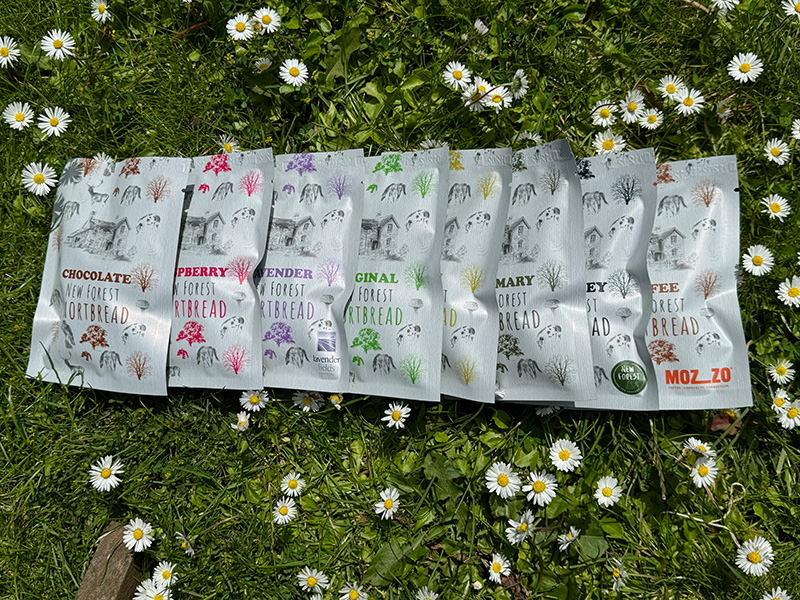 CHOCOLATE
NEW FOREST
ORTBREAD
PBERRY
FOREST
RTBREAD
VENDER
FOREST
RTBREAD
lavender
fields
GINAL
FOREST
RTBREAD
MARY
OREST
BREAD
EY
REST
READ
NEW
FOREST
FEE
FOREST
BREAD
MOZ_ZO